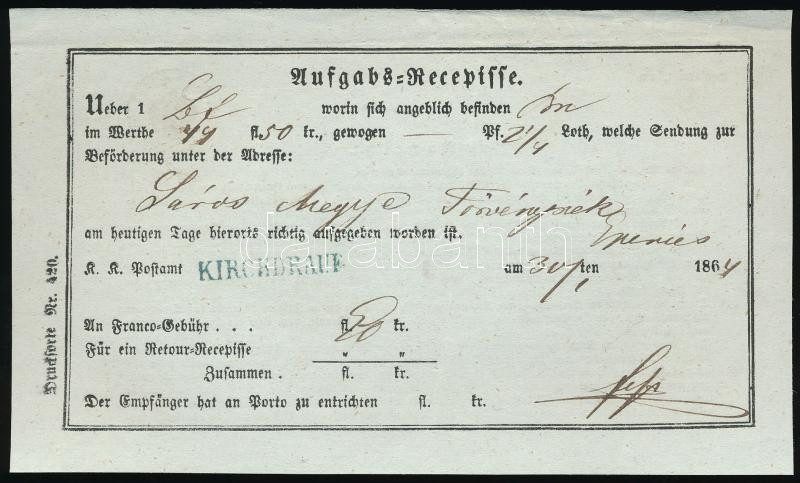 Aufgabs-Recepisse.
Ueber 1 Bf worin sich angeblich befinden
im Werthe 44 fl. 50 kr., gewogen — Pf. 2 1/4 Loth, welche Sendung zur
Beförderung unter der Adresse:
Sáros Megye Törvényszék
am heutigen Tage hierorts richtig aufgegeben worden ist.
Eperies
K. K. Postamt KIRCHDRAUF am 30/1 ten 1864
An Franco-Gebühr . . . fl. 20 kr.
Für ein Retour-Recepisse " "
Zusammen . fl. kr.
Der Empfänger hat an Porto zu entrichten fl. kr.
Drucksorte Nr. 420.
darabanth